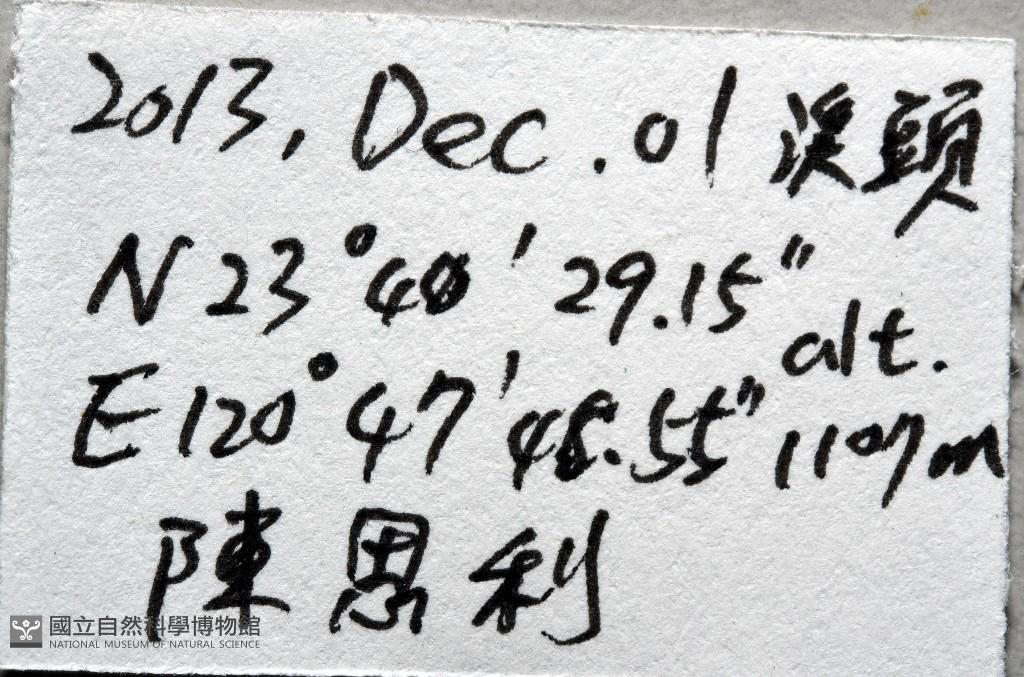 2013, Dec. 01 溪頭
N 23°40'29.15"
E 120°47'48.55" alt. 1107m
陳思利
國立自然科學博物館
NATIONAL MUSEUM OF NATURAL SCIENCE